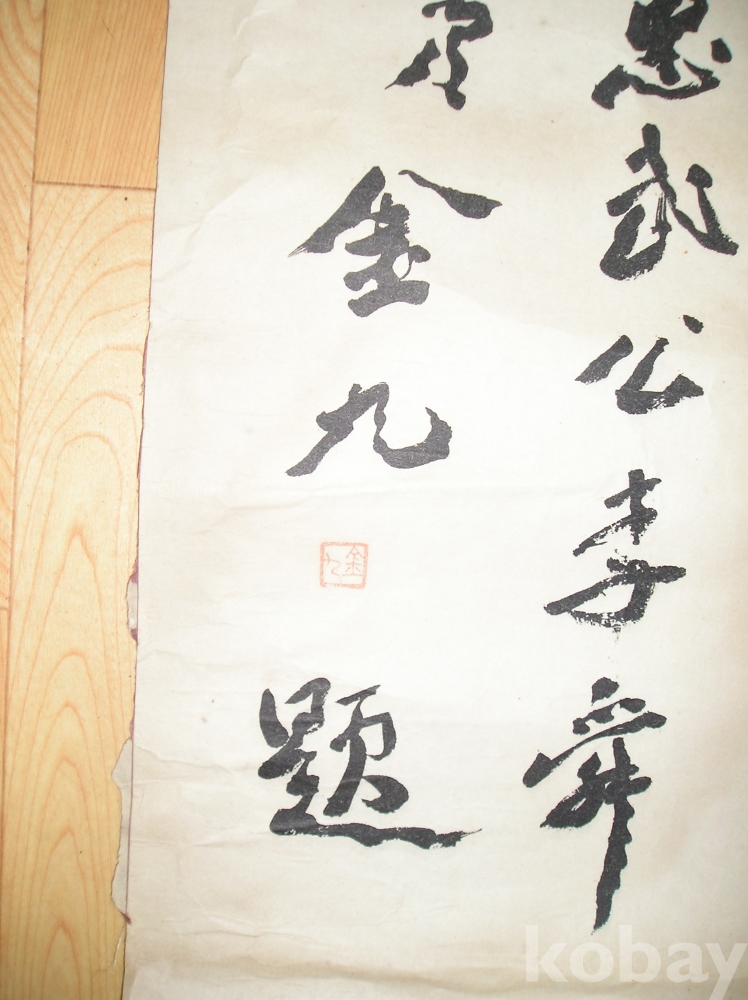 忠武公李舜
金九
題
金九
kobay